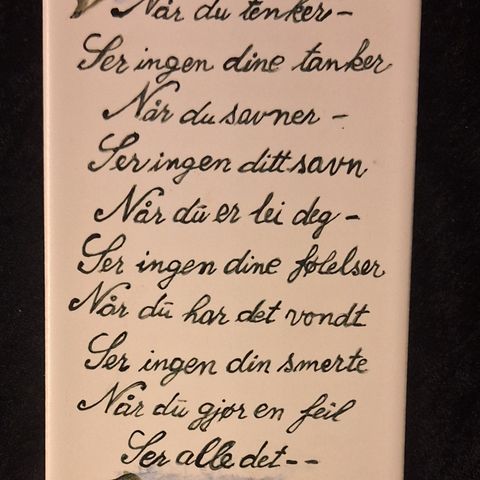 Når du tenker -
Ser ingen dine tanker
Når du savner -
Ser ingen ditt savn
Når dū er lei deg -
Ser ingen dine følelser
Når dū har det vondt
Ser ingen din smerte
Når dū gjør en feil
Ser alle det--